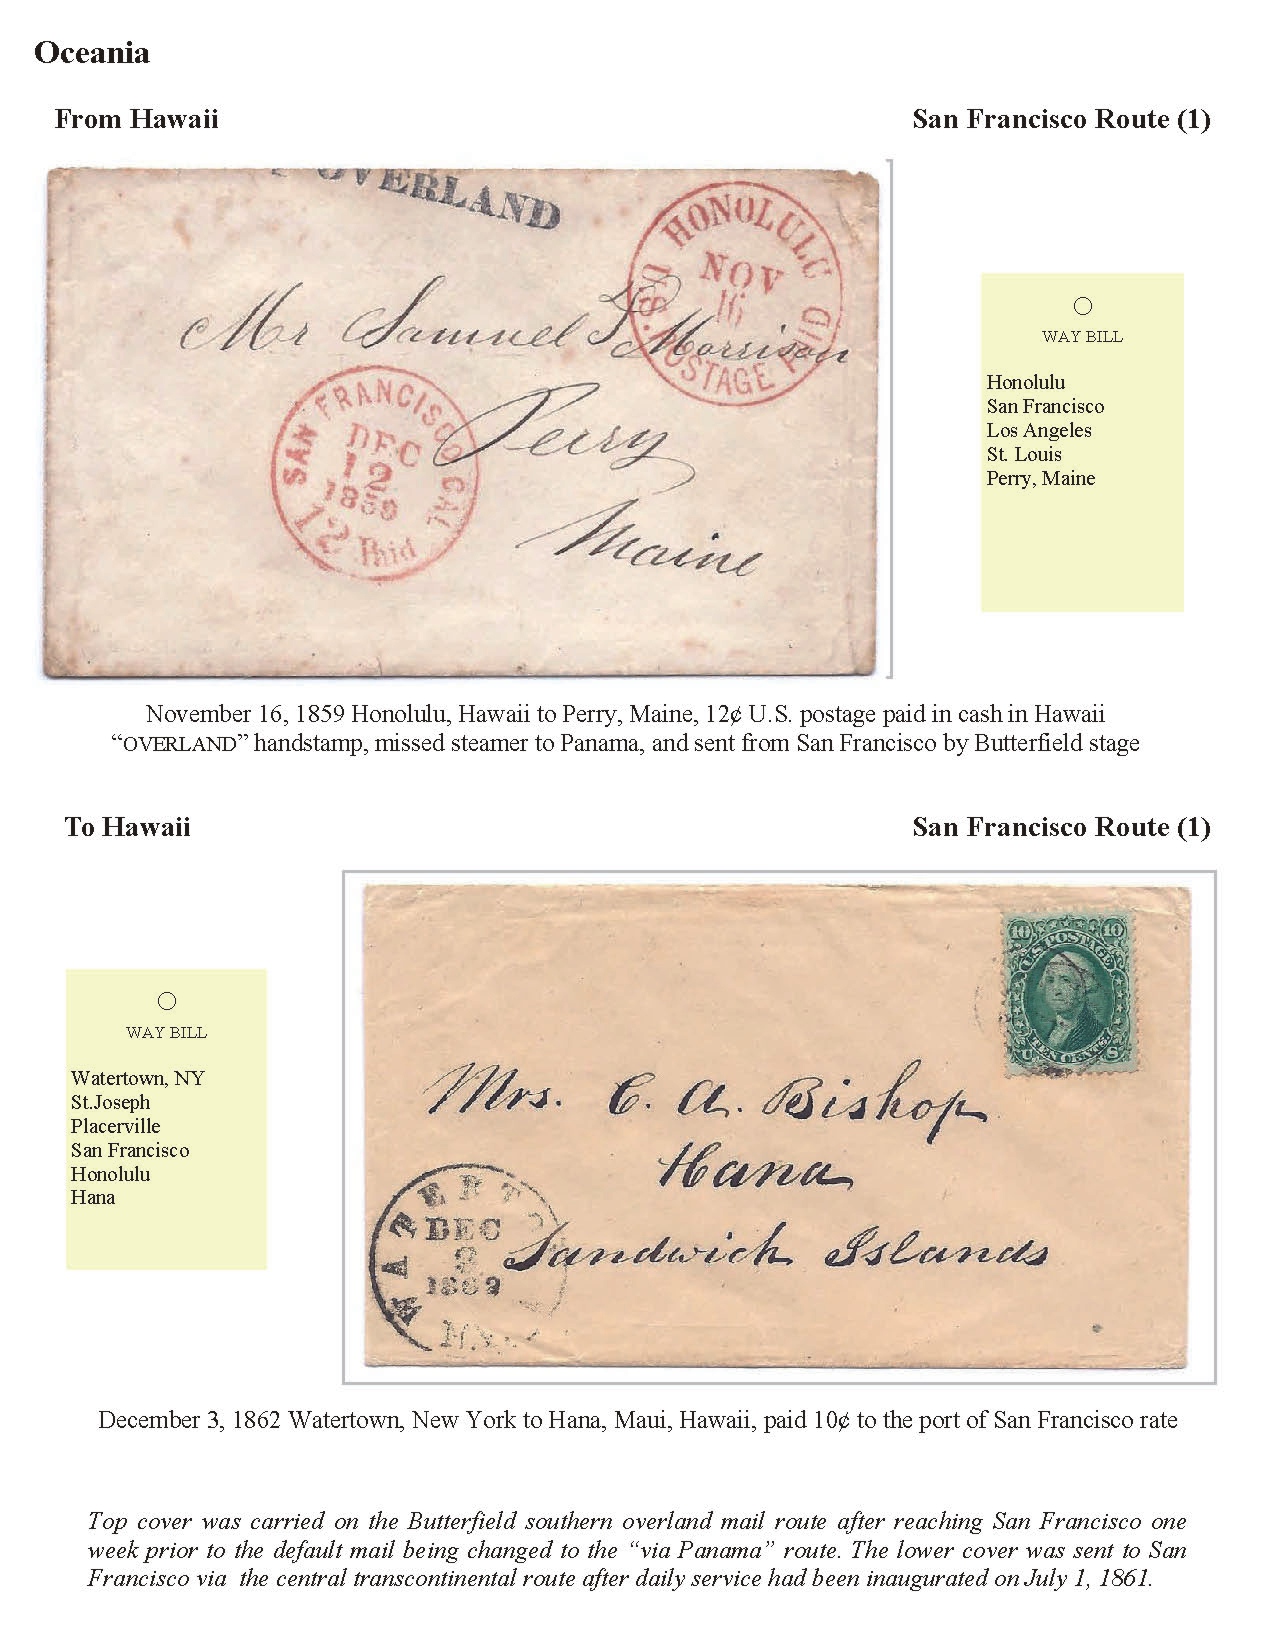 Oceania
From Hawaii
San Francisco Route (1)
OVERLAND
HONOLULU
NOV
16
U.S. POSTAGE PAID
Mr Samuel S Morrison
Perry
Maine
SAN FRANCISCO CAL
DEC
12
1859
12 Paid
WAY BILL
Honolulu
San Francisco
Los Angeles
St. Louis
Perry, Maine
November 16, 1859 Honolulu, Hawaii to Perry, Maine, 12¢ U.S. postage paid in cash in Hawaii
“OVERLAND” handstamp, missed steamer to Panama, and sent from San Francisco by Butterfield stage
To Hawaii
San Francisco Route (1)
WAY BILL
Watertown, NY
St.Joseph
Placerville
San Francisco
Honolulu
Hana
10 10
U.S. POSTAGE
TEN CENTS
U S
Mrs. C. A. Bishop
Hana
Sandwich Islands
WATERTO
DEC
3
1862
N.Y.
December 3, 1862 Watertown, New York to Hana, Maui, Hawaii, paid 10¢ to the port of San Francisco rate
Top cover was carried on the Butterfield southern overland mail route after reaching San Francisco one
week prior to the default mail being changed to the “via Panama” route. The lower cover was sent to San
Francisco via the central transcontinental route after daily service had been inaugurated on July 1, 1861.